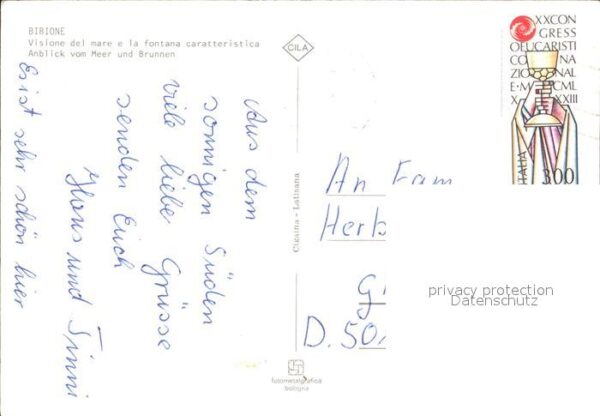 BIBIONE
Visione del mare e la fontana caratteristica
Anblick vom Meer und Brunnen
CILA
Aus dem
sonnigen Süden
viele liebe Grüsse
senden Euch
Hans und Finni
Es ist sehr schön hier
Cicaina - Latisana
fotometalgrafica
bologna
XXCON
GRESS
OEUCARISTI
CO NA
ZIONAL
E·M CML
X XXIII
ITALIA 300
An Fam
Herb
G
D. 50
privacy protection
Datenschutz